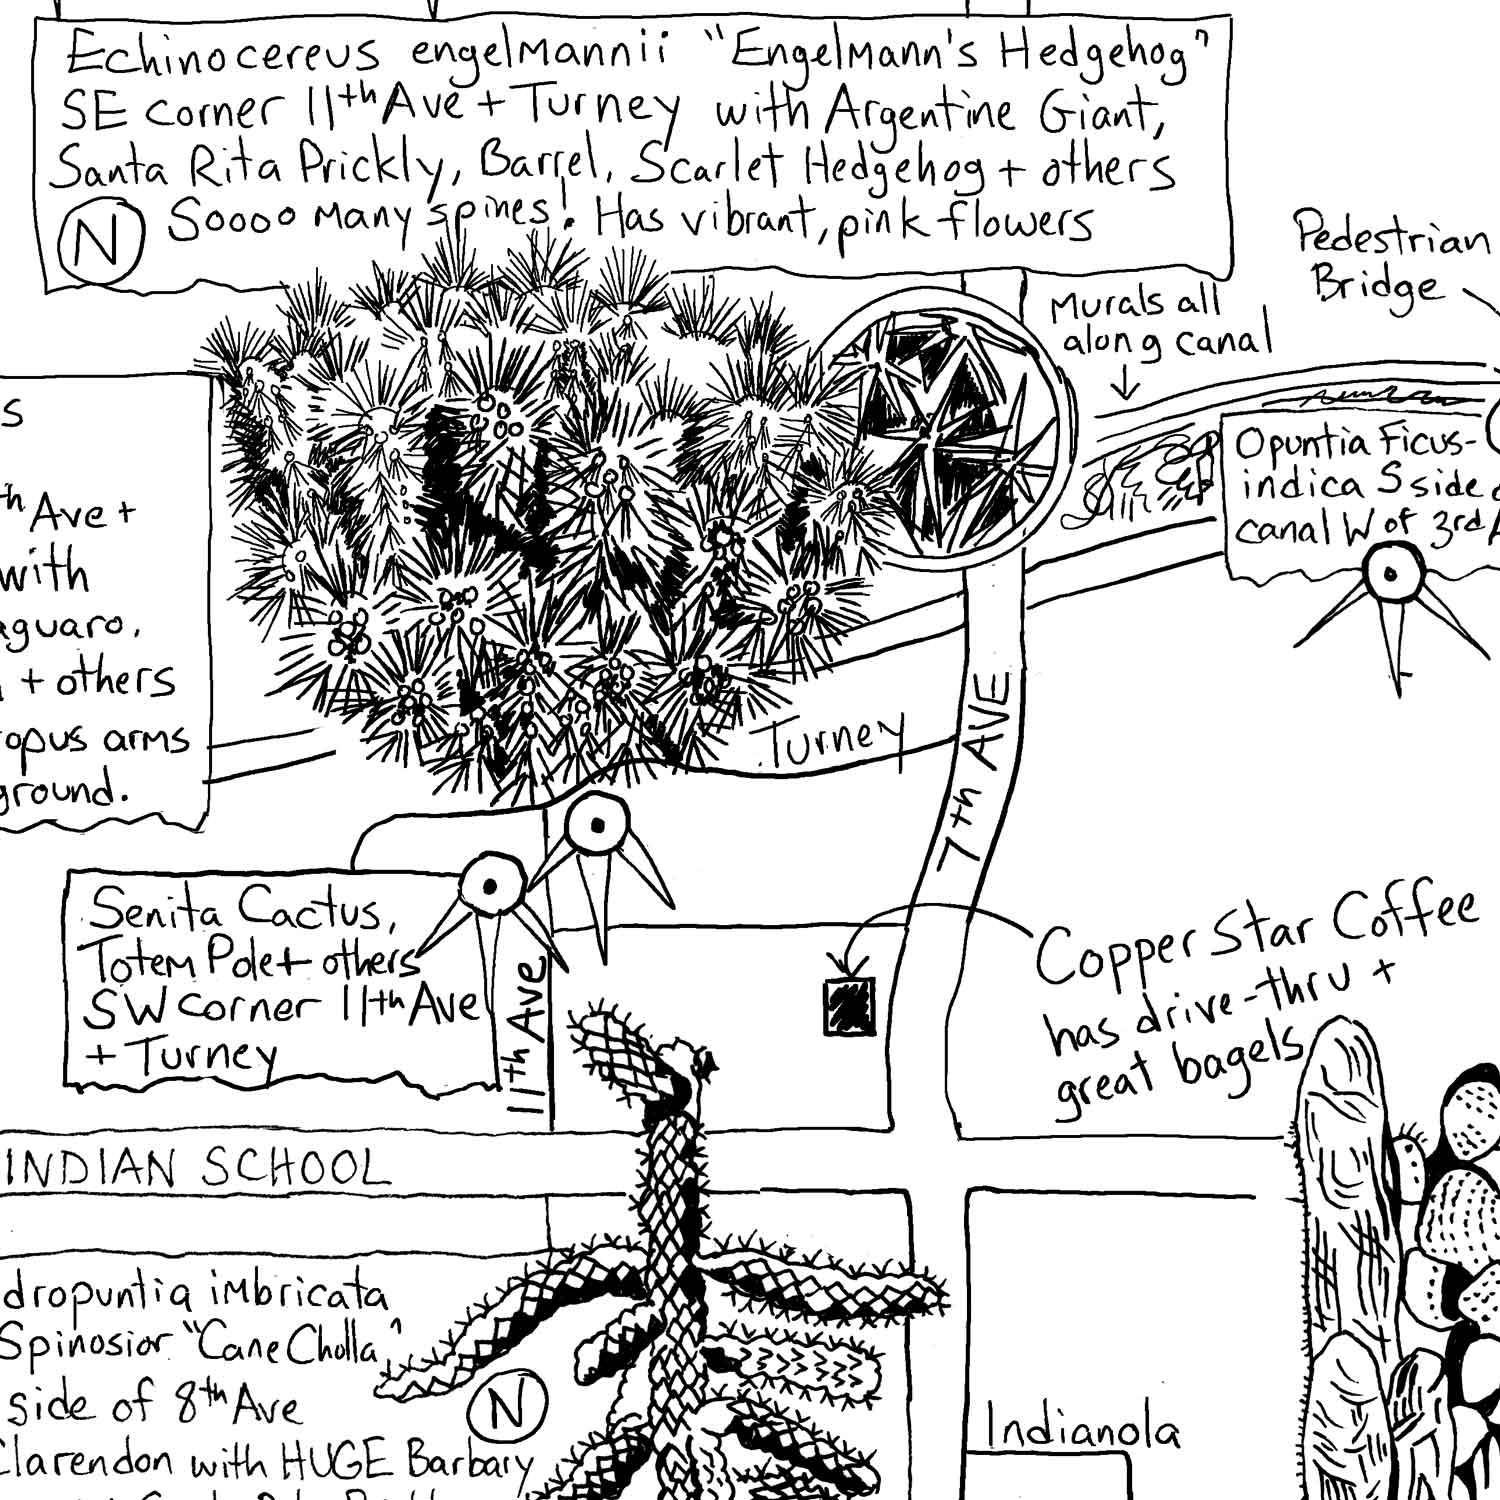 Echinocereus engelmannii "Engelmann's Hedgehog"
SE corner 11th Ave + Turney with Argentine Giant,
Santa Rita Prickly, Barrel, Scarlet Hedgehog + others
N Soooo many spines! Has vibrant, pink flowers
Pedestrian
Bridge
Murals all
along canal
Opuntia Ficus-
indica S side
canal W of 3rd
Ave +
with
+ others
arms
ground.
Turney
7th AVE
Senita Cactus,
Totem Pole + others
SW corner 11th Ave
+ Turney
11th Ave
Copper Star Coffee
has drive-thru +
great bagels
INDIAN SCHOOL
imbricata
Spinosior "Cane Cholla"
side of 8th Ave
N
Clarendon with HUGE Barbary
Indianola